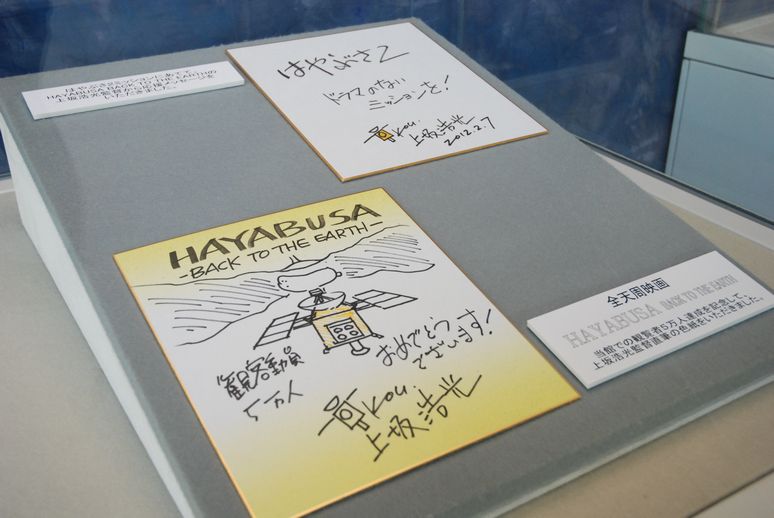 はやぶさ2ミッションにあてて
HAYABUSA BACK TO THE EARTHの
上坂浩光監督から応援メッセージを
いただきました。
はやぶさ2
ドラマのない
ミッションを!
Kou.
上坂浩光
2012.2.7
HAYABUSA
-BACK TO THE EARTH-
観客動員
5万人
おめでとう
ございます!
Kou.
上坂浩光
全天周映画
HAYABUSA BACK TO THE EARTH
当館での観覧者5万人達成を記念して、
上坂浩光監督直筆の色紙をいただきました。